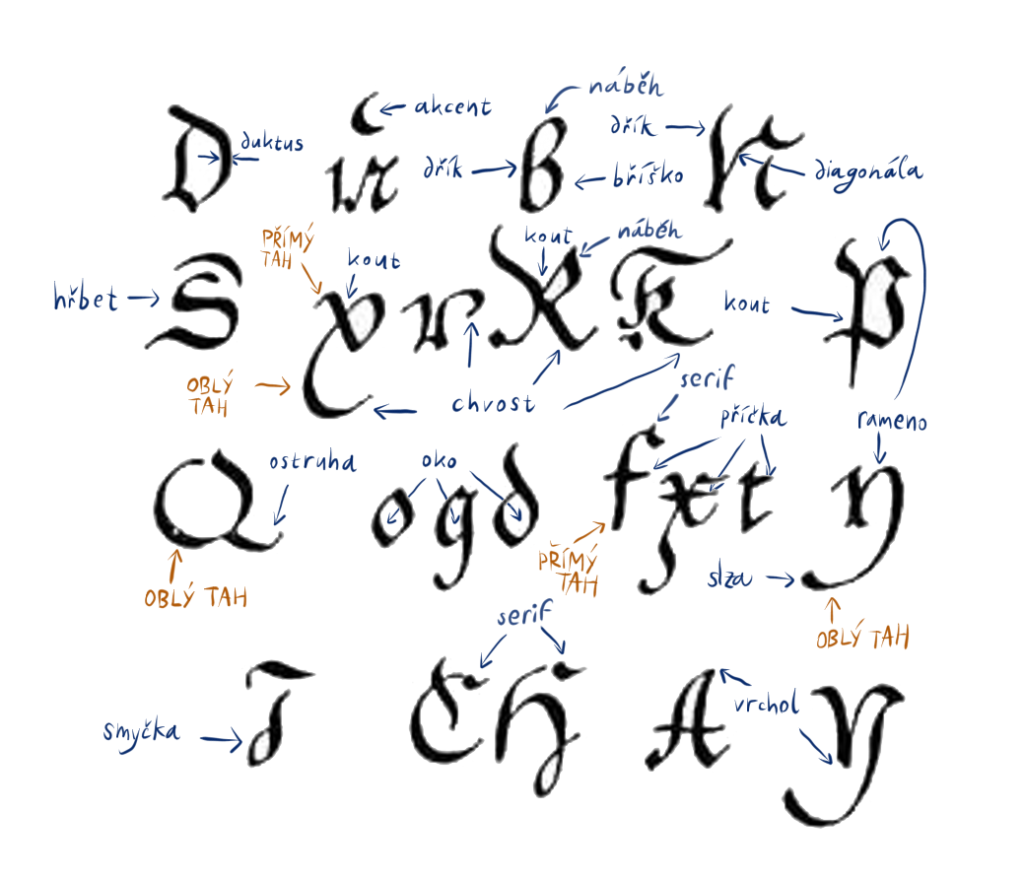 náběh
akcent
duktus
dřík
dřík
bříško
diagonála
D ň B N
PŘÍMÝ
TAH
kout
kout
náběh
hřbet
kout
S
OBLÝ
TAH
chvost
serif
příčka
rameno
ostruha
oko
Q o g d f x t y
PŘÍMÝ
TAH
slza
OBLÝ TAH
OBLÝ TAH
serif
vrchol
smyčka